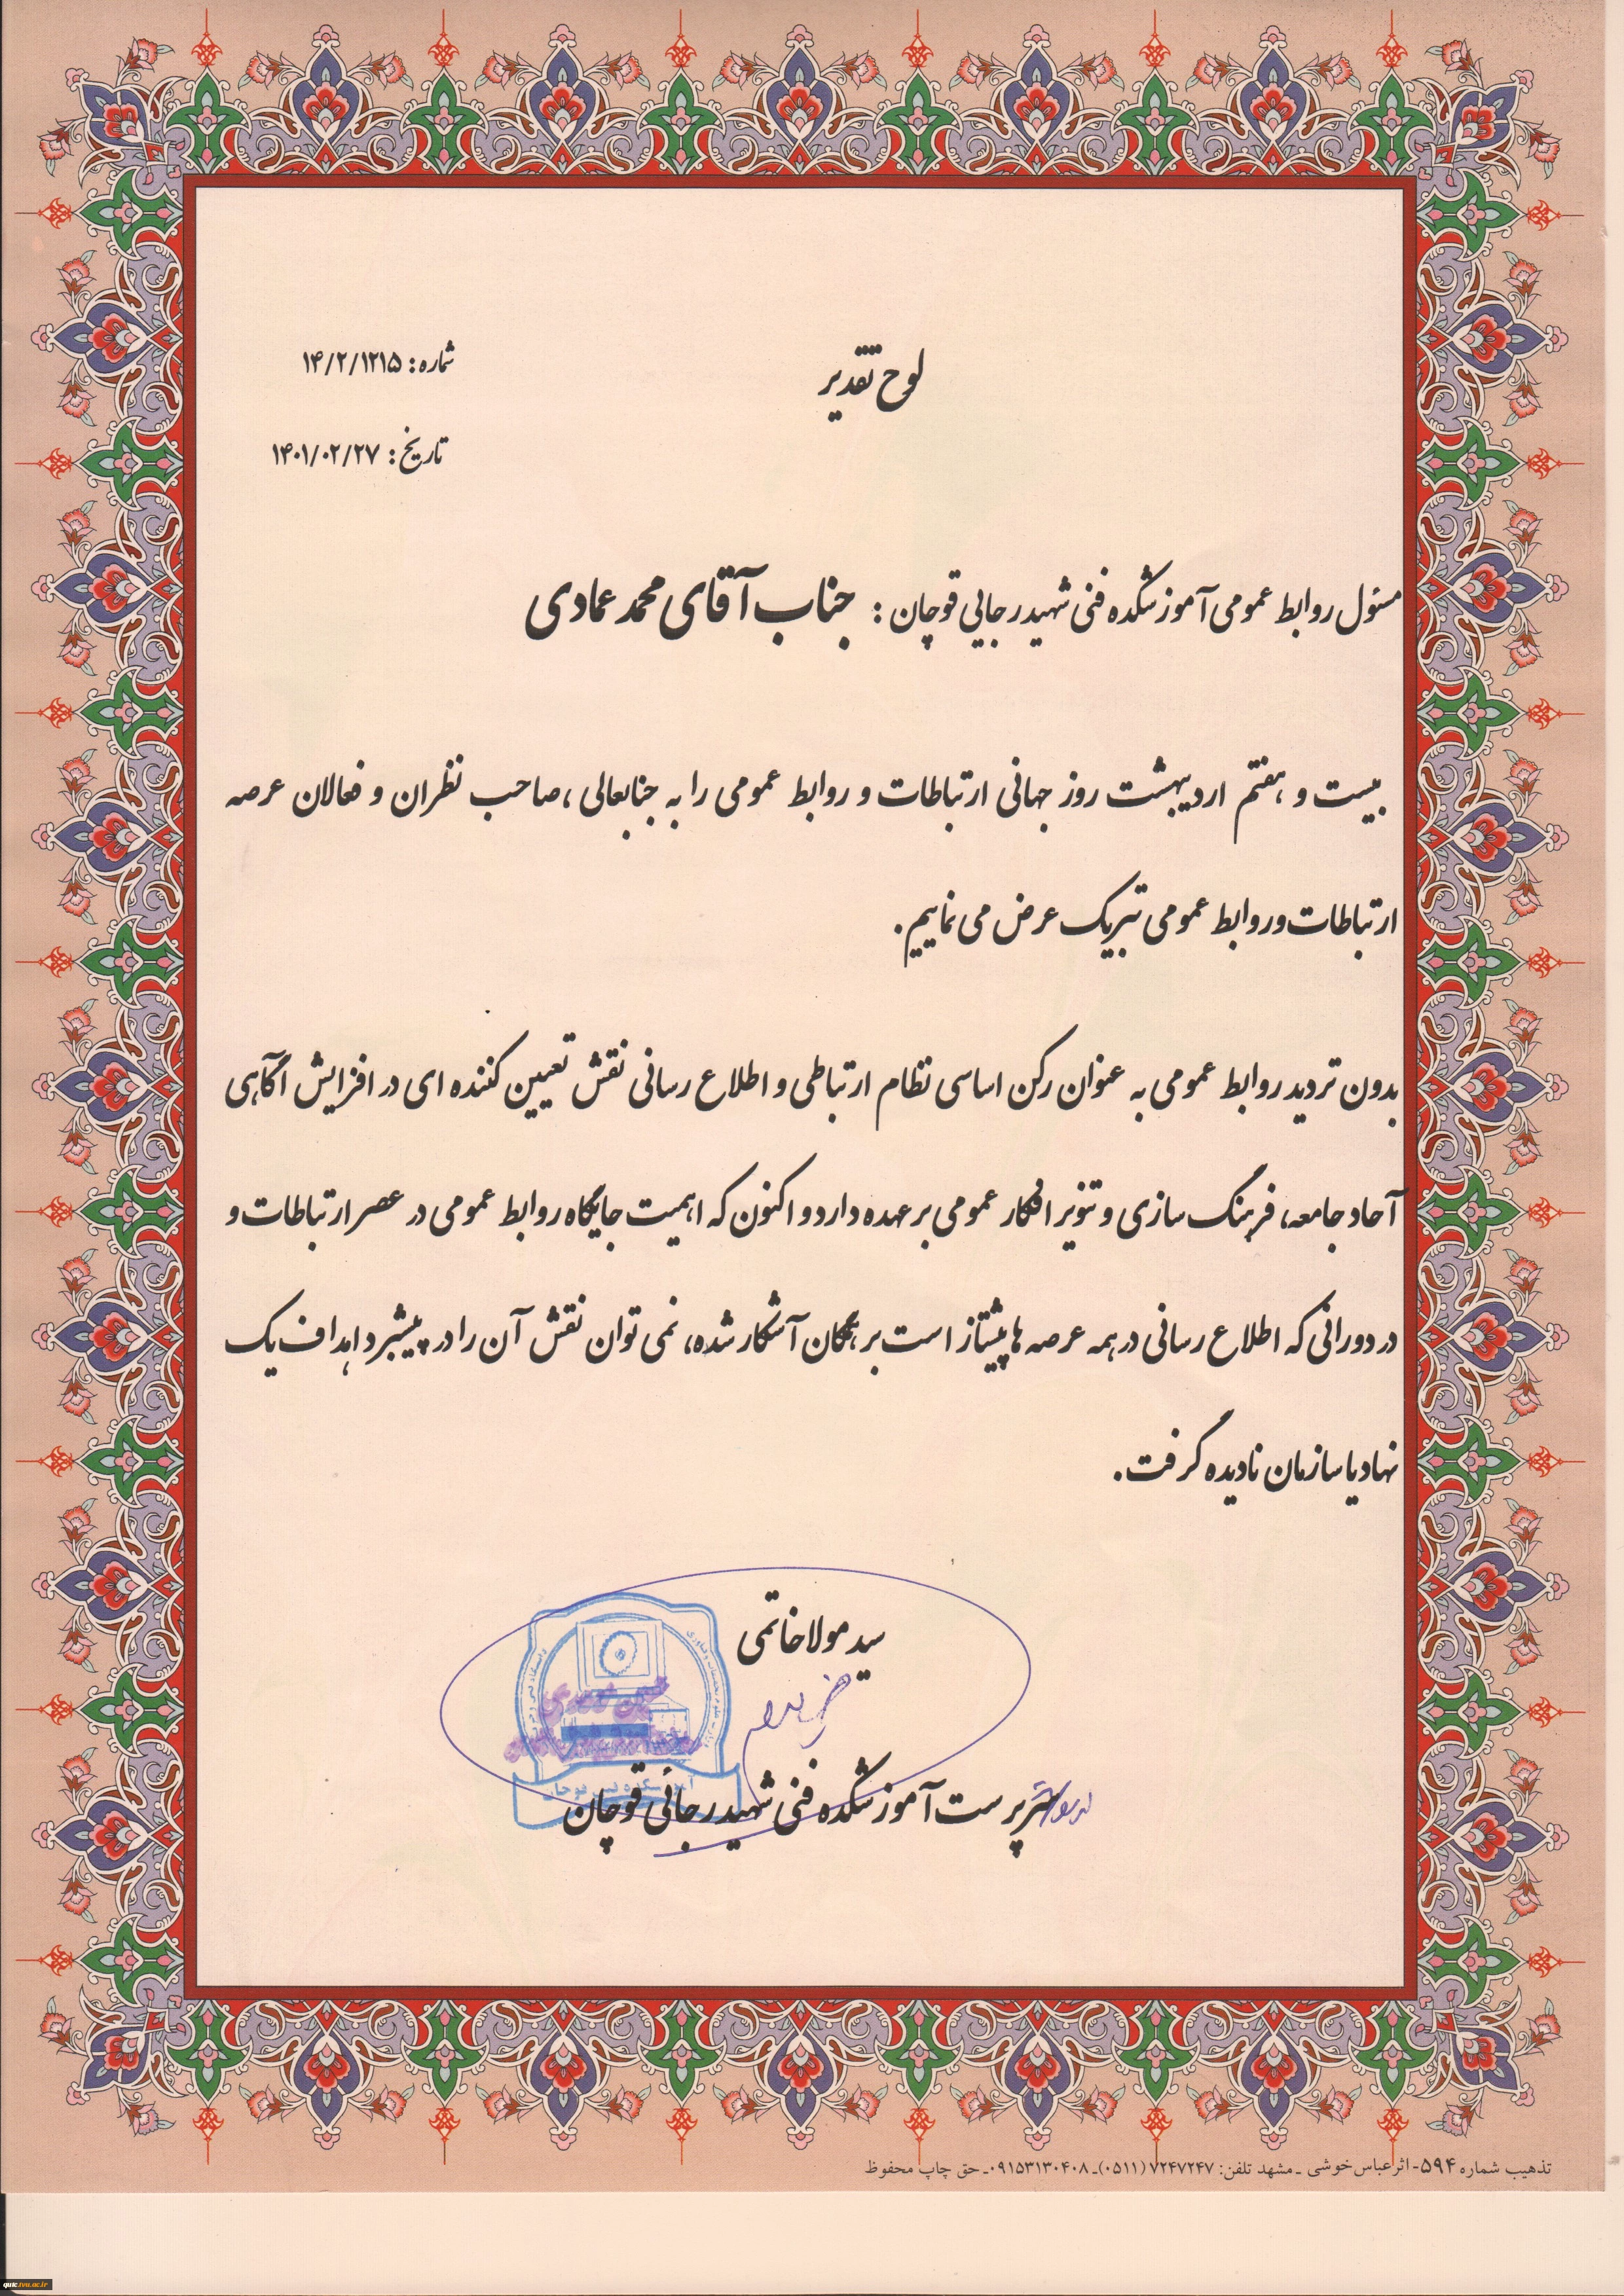 لوح تقدیر
شماره: ۱۴/۲/۱۲۱۵
تاریخ: ۱۴۰۱/۰۲/۲۷
مسئول روابط عمومی آموزشکده فنی شهید رجایی قوچان : جناب آقای محمد عمادی
بیست و هفتم اردیبهشت روز جهانی ارتباطات و روابط عمومی را به جنابعالی ،صاحب نظران و فعالان عرصه
ارتباطات و روابط عمومی تبریک عرض می نماییم.
بدون تردید روابط عمومی به عنوان رکن اساسی نظام ارتباطی و اطلاع رسانی نقش تعیین کننده ای در افزایش آگاهی
آحاد جامعه، فرهنگ سازی و تنویر افکار عمومی بر عهده دارد و اکنون که اهمیت جایگاه روابط عمومی در عصر ارتباطات و
در دورانی که اطلاع رسانی در همه عرصه ها پیشتاز است بر همگان آشکار شده، نمی توان نقش آن را در پیشبرد اهداف یک
نهاد یا سازمان نادیده گرفت.
سید مولا خاتمی
سرپرست آموزشکده فنی شهید رجائی قوچان
تذهیب شماره ۵۹۴- اثر عباس خوشی ـ مشهد تلفن: ۷۲۴۷۲۴۷ (۰۵۱۱)ـ ۰۹۱۵۳۱۳۰۴۰۸ـ حق چاپ محفوظ
qutc.tvu.ac.ir